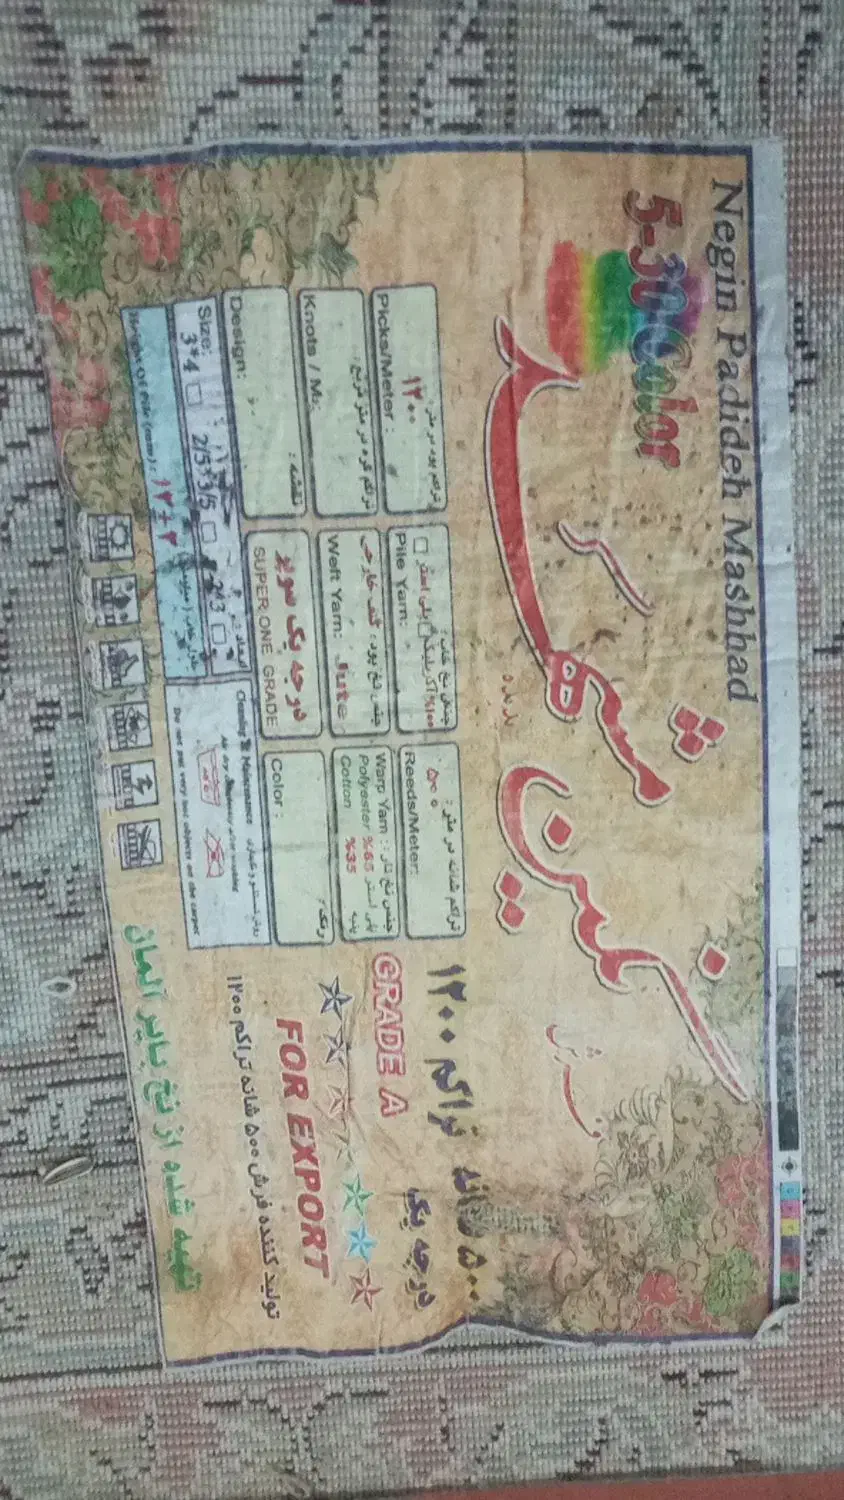 Negin Padideh Mashhad
5-30Color
فرش
نگین مشهد
۵۰۰ شانه تراکم ۱۲۰۰
درجه یک
GRADE A
FOR EXPORT
تولید کننده فرش ۵۰۰ شانه تراکم ۱۲۰۰
تهیه شده از نخ بایر آلمان
تراکم پود در متر :
۱۲۰۰
Picks/Meter :
جنس نخ خاب :
%۱۰۰ آکریلیک پلی استر
Pile Yarn:
تراکم شانه در متر :
۵۰۰
Reeds/Meter:
تراکم گره در متر مربع :
Knots / M²:
جنس نخ پود : کنف خارجی
Weft Yarn: Jute
جنس نخ تار : Warp Yarn :
پلی استر %65 Polyester
پنبه %35 Cotton
نقشه :
Design:
درجه یک سوپر
SUPER ONE GRADE
رنگ :
Color :
Size:
3*4 2/5*3/5 2*3
Height Of Pile (mm) : ۱۲±۲
Cleaning & Maintenance
Do not put very hot objects on the carpet